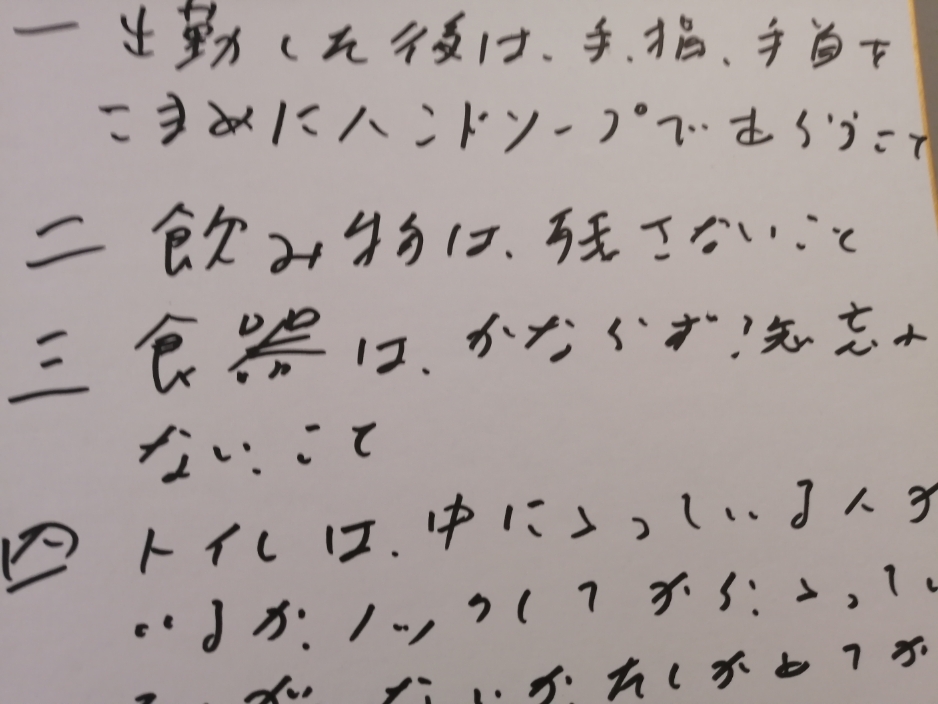 一 出勤した後は、手、指、手首を
こまめにハンドソープであらうこと
二 飲み物は、残さないこと
三 食器は、かならず!洗忘れ
ないこと
四 トイレは、中にはいっている人が
いるか、ノックしてから、はいって